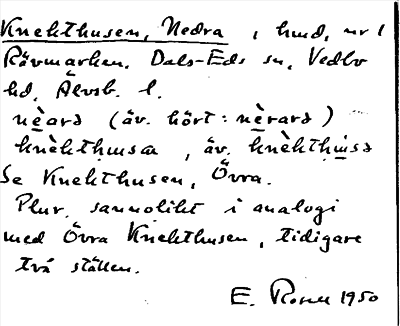 Knekthusen, Nedra, hmd, nr 1
Rävmarken, Dals-Eds sn, Vedbo
hd, Älvsb. l.
nèara (äv. hört: nèrara)
knèkthusa, äv. knèkthusa
Se Knekthusen, Övra.
Plur. sannolikt i analogi
med Övra Knekthusen, tidigare
två ställen.
E. Rosell 1950